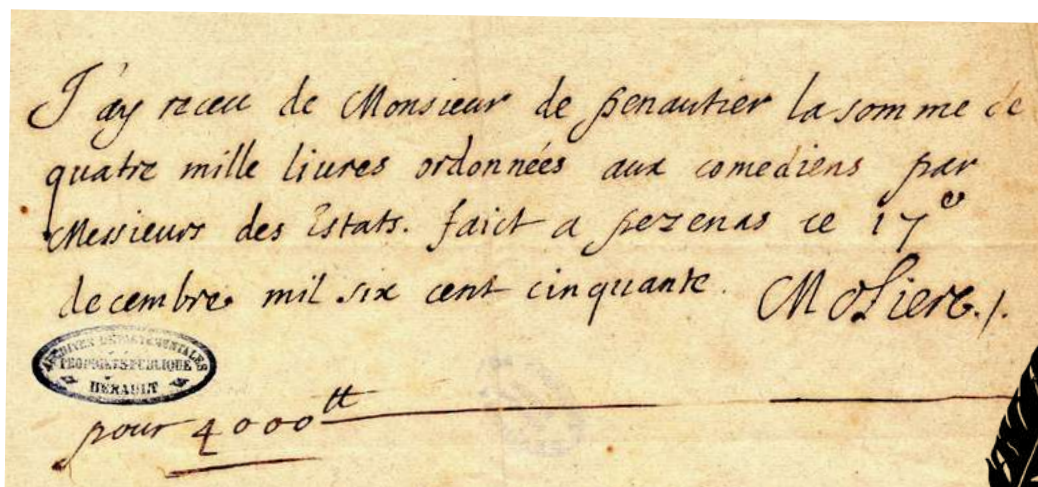 J'ay receu de Monsieur de penautier la somme de
quatre mille liures ordonnées aux comediens par
Messieurs des Estats. faict a pezenas ce 17e
decembre mil six cent cinquante. Moliere./.
ARCHIVES DÉPARTEMENTALES
PROPRIÉTÉ PUBLIQUE
HÉRAULT
pour 4000tt